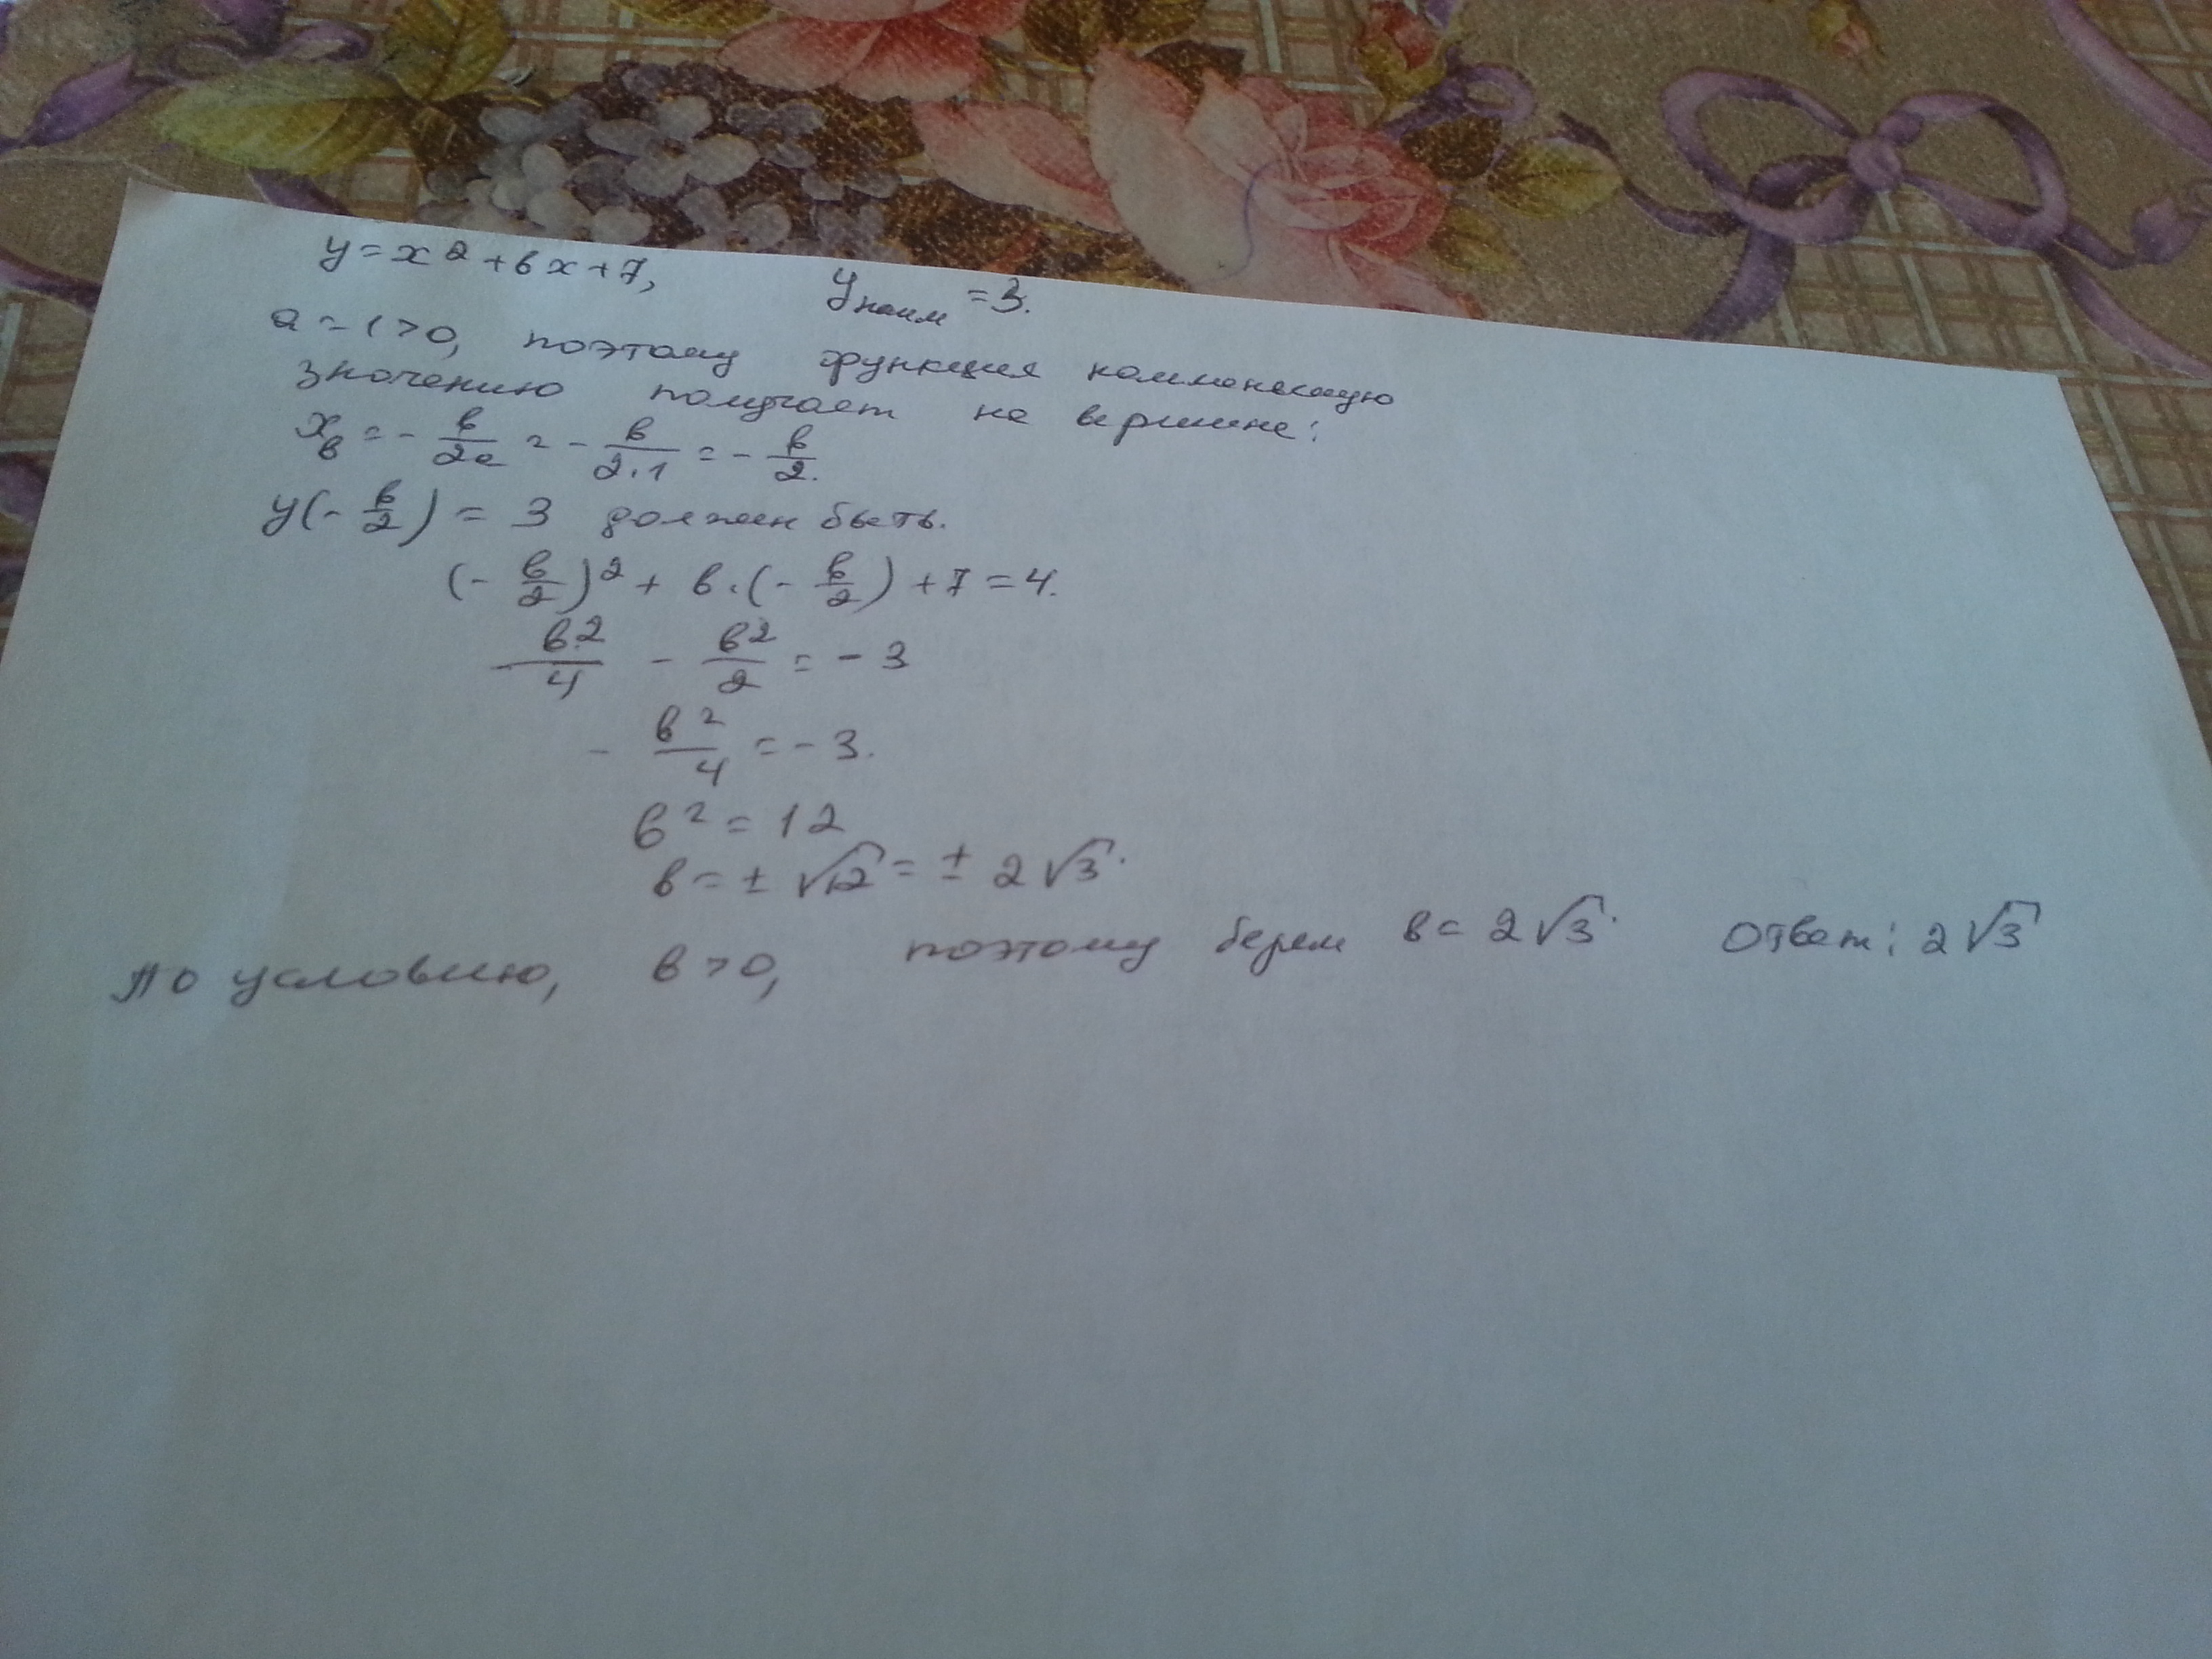 y=x²+вx+7, yнаим=3.
a=1>0, поэтому функция наименьшую
значению получает на вершине:
xв=-в/2a=-в/2·1=-в/2.
y(-в/2)=3 должен быть.
(-в/2)²+в·(-в/2)+7=4.
в²/4-в²/2=-3
-в²/4=-3.
в²=12
в=±√12=±2√3.
По условию, в>0, поэтому берем в=2√3. Ответ: 2√3